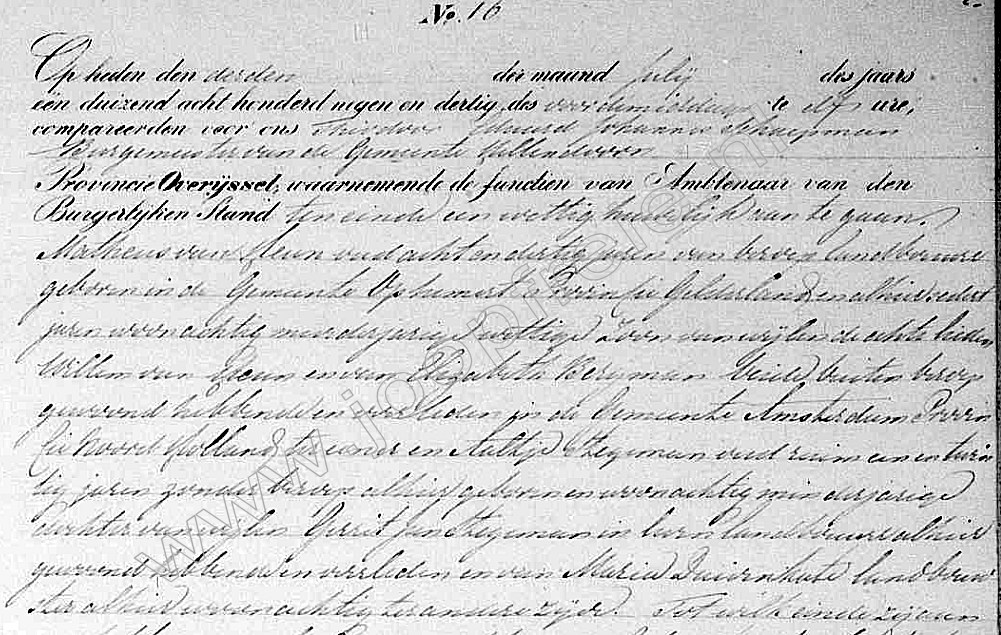 No. 16
Op heden den derden der maand Julij des jaars
een duizend acht honderd negen en dertig, des voordemiddags te elf ure,
compareerden voor ons Theodoor Eduard Johannes Schaepman
Burgemeester van de Gemeente Hellendoorn
Provincie Overijssel, waarnemende de functien van Ambtenaar van den
Burgerlijken Stand ten einde een wettig huwelijk aan te gaan,
Matheus van Heun oud acht en dertig jaren van beroep landbouwer
geboren in de Gemeente Ophemert Provincie Gelderland, en alhier sedert
jaren woonachtig minderjarige wettige Zoon van wijlen de echte lieden
Willem van Heun en van Elizabeth Bergman beide buiten beroep
gewoond hebbende en overleden in de Gemeente Amsterdam Provin
cie Noord Holland, ter eenre en Aaltje Stegeman oud ruim een en twin
tig jaren zonder beroep alhier geboren en woonachtig minderjarige
dochter van wijlen Gerrit Jan Stegeman in leven landbouwer alhier
gewoond hebbende en overleden en van Maria Duirnhate landbouw
ster alhier woonachtig ter andere zijde. Tot welk einde zij aan